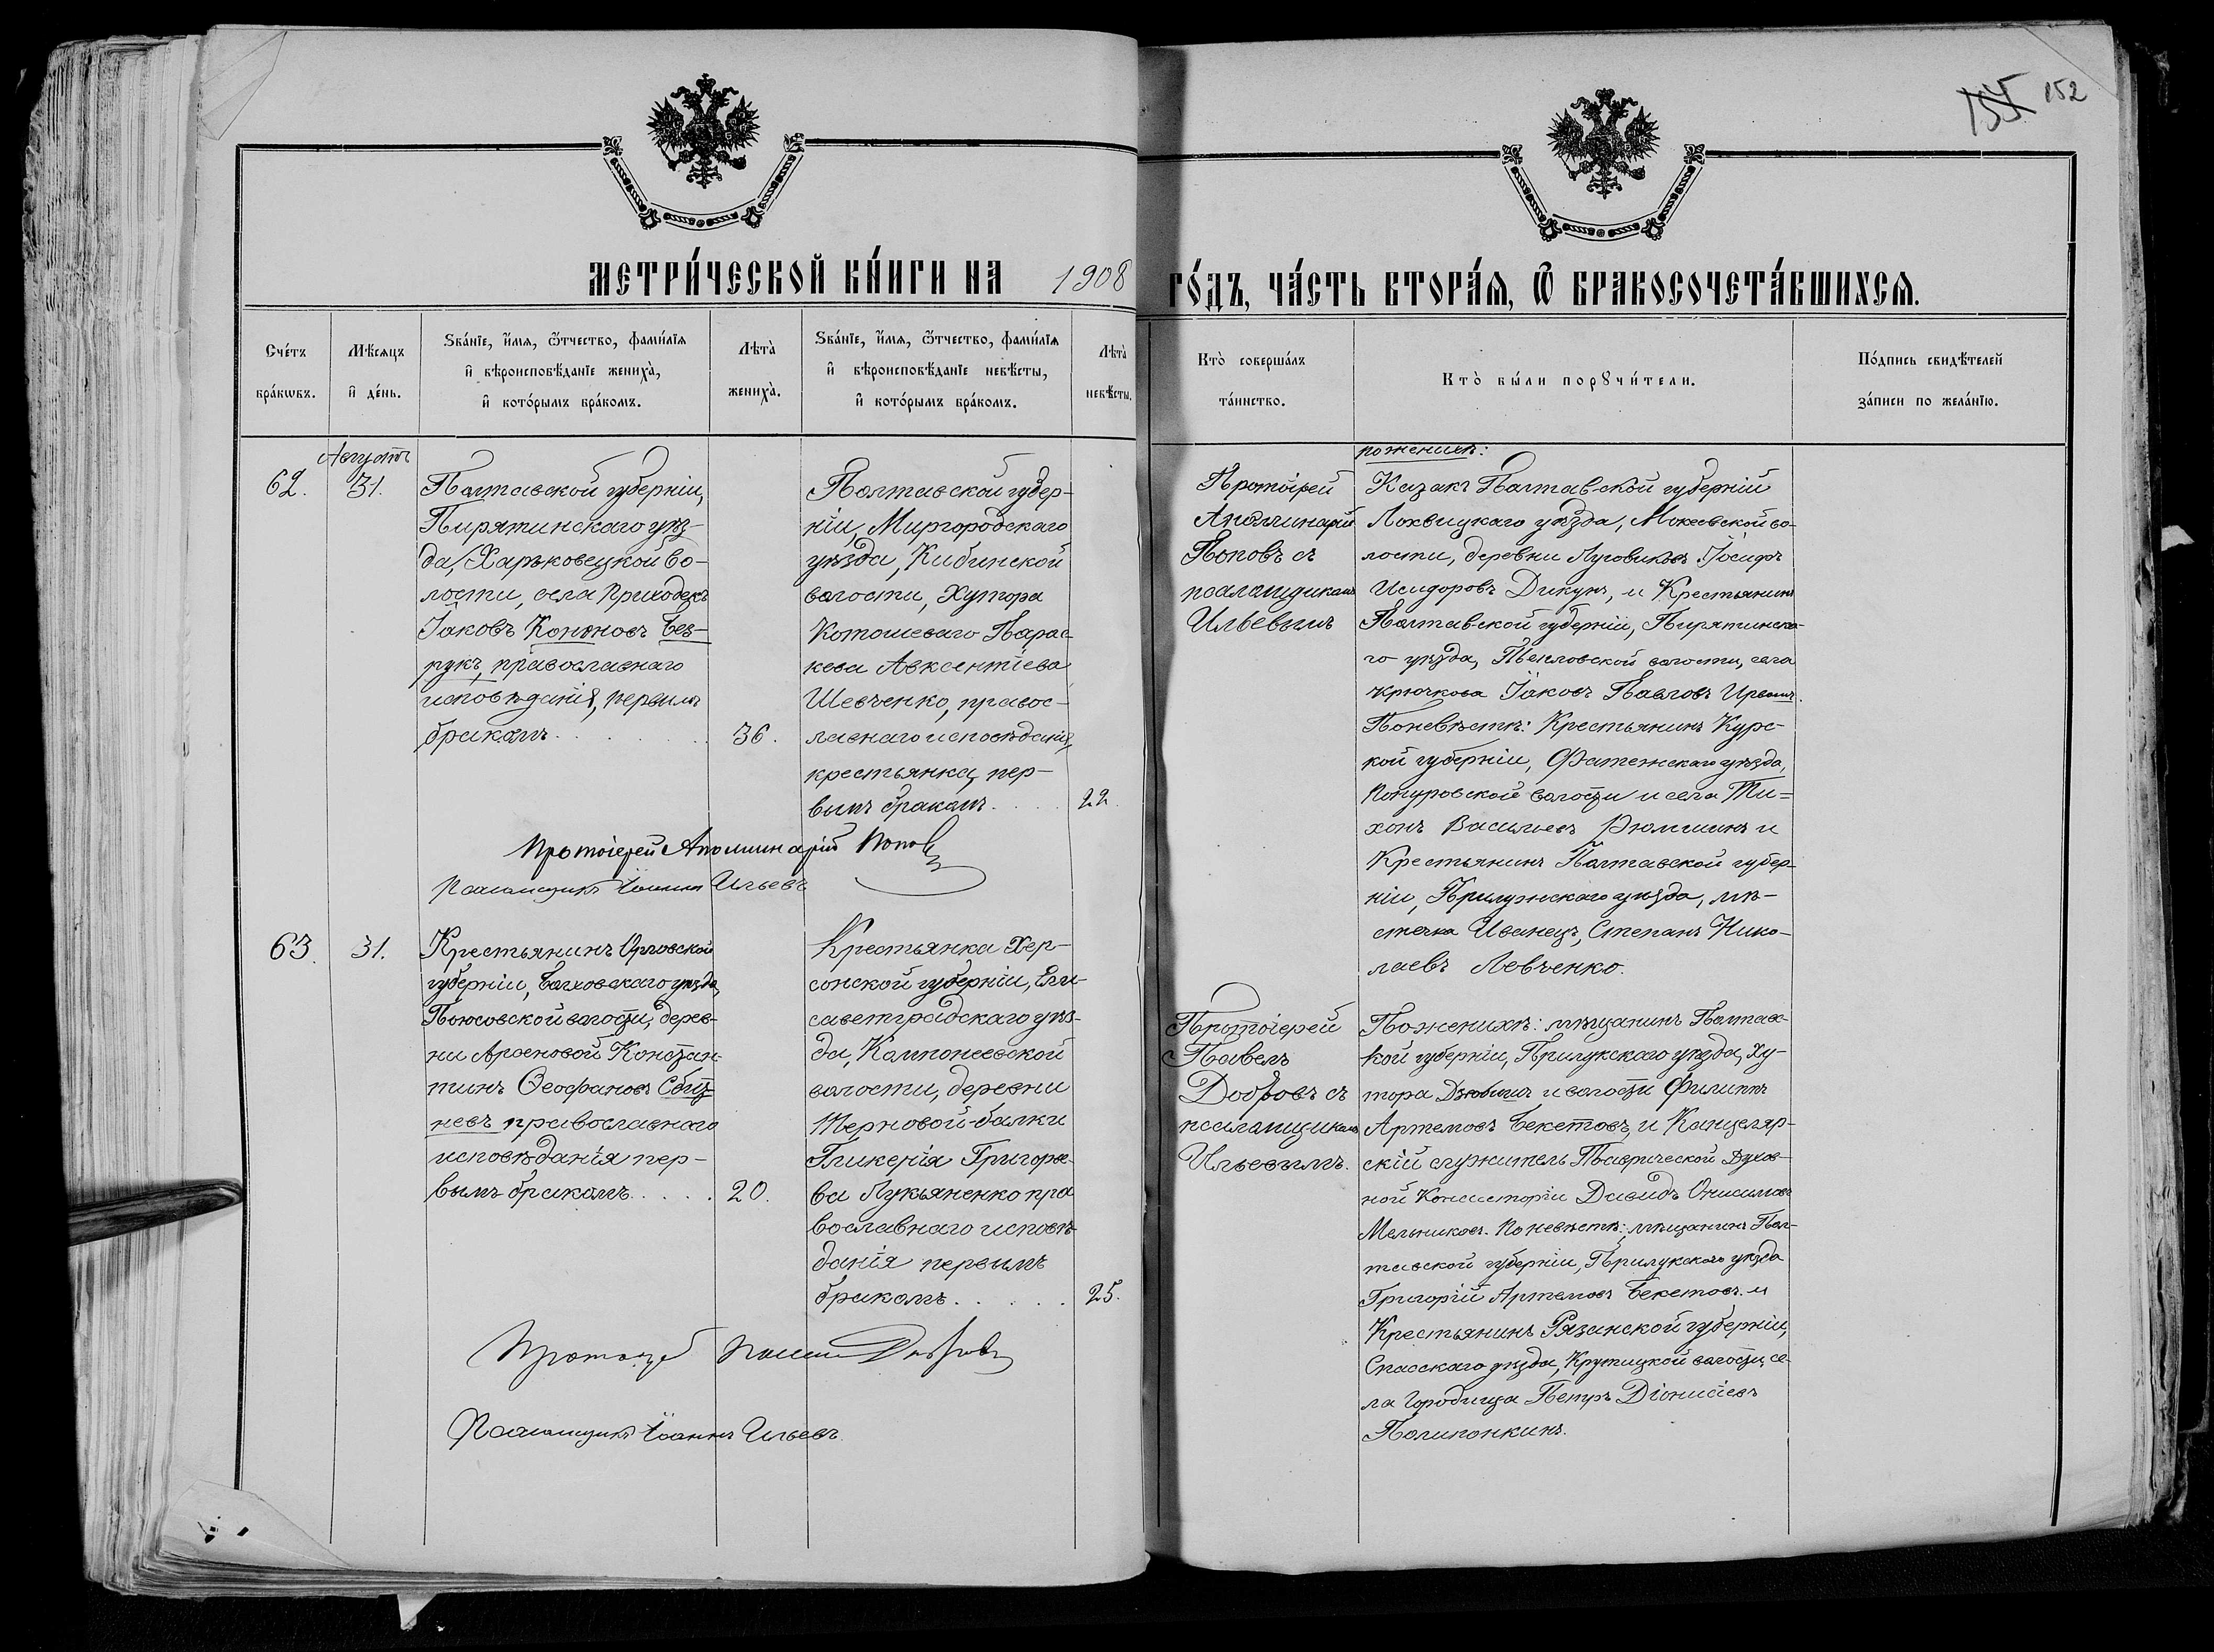 155 152
МЕТРИ́ЧЕСКОЙ КНИ́ГИ НА 1908 ГО́ДЪ, ЧА́СТЬ ВТОРА́Ѧ, Ѿ БРАКОСОЧЕТА́ВШИХСѦ.
Сче́тъ бра́кѡвъ.
Мѣ́сѧцъ и҆ де́нь.
Ѕва́нїе, и҆́мѧ, ѻ҆́тчество, фами́лїѧ
и҆ вѣроисповѣ́данїе жениха̀,
и҆ кото́рымъ бра́комъ.
Лѣта̀ жениха̀.
Ѕва́нїе, и҆́мѧ, ѻ҆́тчество, фами́лїѧ
и҆ вѣроисповѣ́данїе невѣ́сты,
и҆ кото́рымъ бра́комъ.
Лѣта̀ невѣ́сты.
Кто̀ соверша́лъ
та́инство.
Кто̀ бы́ли порꙋчи́тели.
По́дпись свидѣ́телей
за́писи по жела́нїю.
Августъ
62. 31.
Полтавской губерніи,
Пирятинскаго уѣз-
да, Харьковецкой во-
лости, села Приходекъ
Іаковъ Кононовъ Без-
рукъ, православнаго
исповѣданія, первымъ
бракомъ 36.
Полтавской губер-
ніи, Миргородскаго
уѣзда, Кибинской
волости, Хутора
Котошеваго Парас-
кева Авксентіева
Шевченко, правос-
лавнаго исповѣданія,
крестьянка, пер-
вымъ бракомъ 22.
Протоіерей
Аполлинарій
Поповъ съ
псаломщикомъ
Ильевымъ
по женихѣ:
Казакъ Полтавской губерніи
Лохвицкаго уѣзда, Мокеевской во-
лости, деревни Луговиковъ Іосифъ
Исидоровъ Дикунъ, и Крестьянинъ
Полтавской губерніи, Пирятинска-
го уѣзда, волости, села
Крючкова Іаковъ Павловъ
По невѣстѣ: Крестьянинъ Курс-
кой губерніи, Фатежскаго уѣзда,
волости и села Ти-
хонъ Васильевъ и
Крестьянинъ Полтавской губер-
ніи, Прилужскаго уѣзда, мѣ-
стечка Иванецъ, Степанъ Нико-
лаевъ Левченко.
Протоіерей Аполлинарій Поповъ
Псаломщикъ Іоаннъ Ильевъ
63. 31.
Крестьянинъ Орловской
губерніи, Болховскаго уѣзда,
волости, дерев-
ни Арсеновой Констан-
тинъ Ѳеофановъ
невъ православнаго
исповѣданія пер-
вымъ бракомъ 20.
Крестьянка Хер-
сонской губерніи, Ели-
саветградскаго уѣз-
да, Компонеевской
волости, деревни
Терновой-балки
Гликерія Григорье-
ва Лукьяненко пра
вославнаго исповѣ-
данія первымъ
бракомъ 25.
Протоіерей
Павелъ
Добровъ съ
псаломщикомъ
Ильевымъ.
По женихѣ: мѣщанинъ Полтавс-
кой губерніи, Прилукскаго уѣзда, Ху-
тора и волости Филиппъ
Артемовъ Бекетовъ, и Канцеляр-
скій служитель Таврической Духов-
ной Консисторіи Давидъ Онисимовъ
Мельниковъ. По невѣстѣ: мѣщанинъ Пол-
тавской губерніи, Прилукскаго уѣзда
Григорій Артемовъ Бекетовъ и
Крестьянинъ Рязанской губерніи,
Спасскаго уѣзда, Крутицкой волости, се-
ла Городища Петръ Діонисіевъ
Полипонкинъ.
Протоіерей Павелъ Добровъ
Псаломщикъ Іоаннъ Ильевъ.